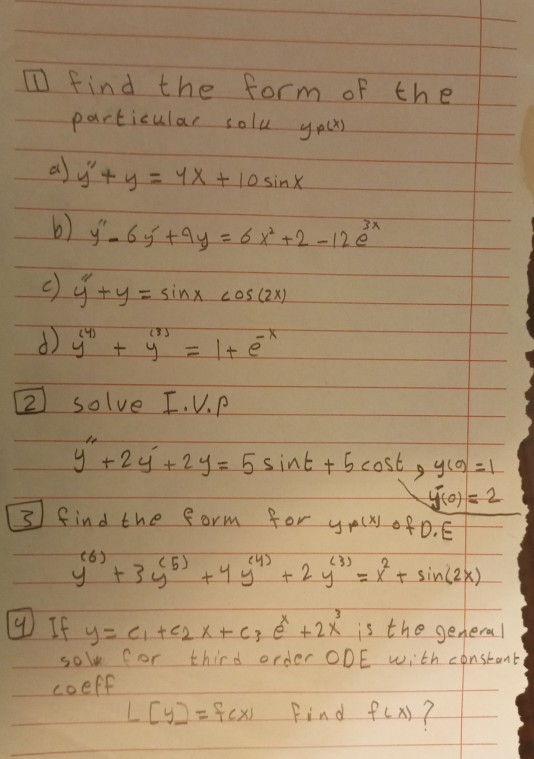 1 find the form of the
particular solu yp(x)
a) y'' + y = 4x + 10 sinx
b) y'' - 6y' + 9y = 6x² + 2 - 12 e^3x
c) y'' + y = sinx cos(2x)
d) y^(4) + y^(3) = 1 + e^-x
2 solve I.V.P
y'' + 2y' + 2y = 5 sint + 5 cost, y(0) = 1
y'(0) = 2
3 find the form for yp(x) of D.E
y^(6) + 3y^(5) + 4y^(4) + 2y^(3) = x² + sin(2x)
4 If y = c₁ + c₂x + c₃ e^x + 2x³ is the general
solu for third order ODE with constant
coeff
L[y] = f(x) find f(x)?